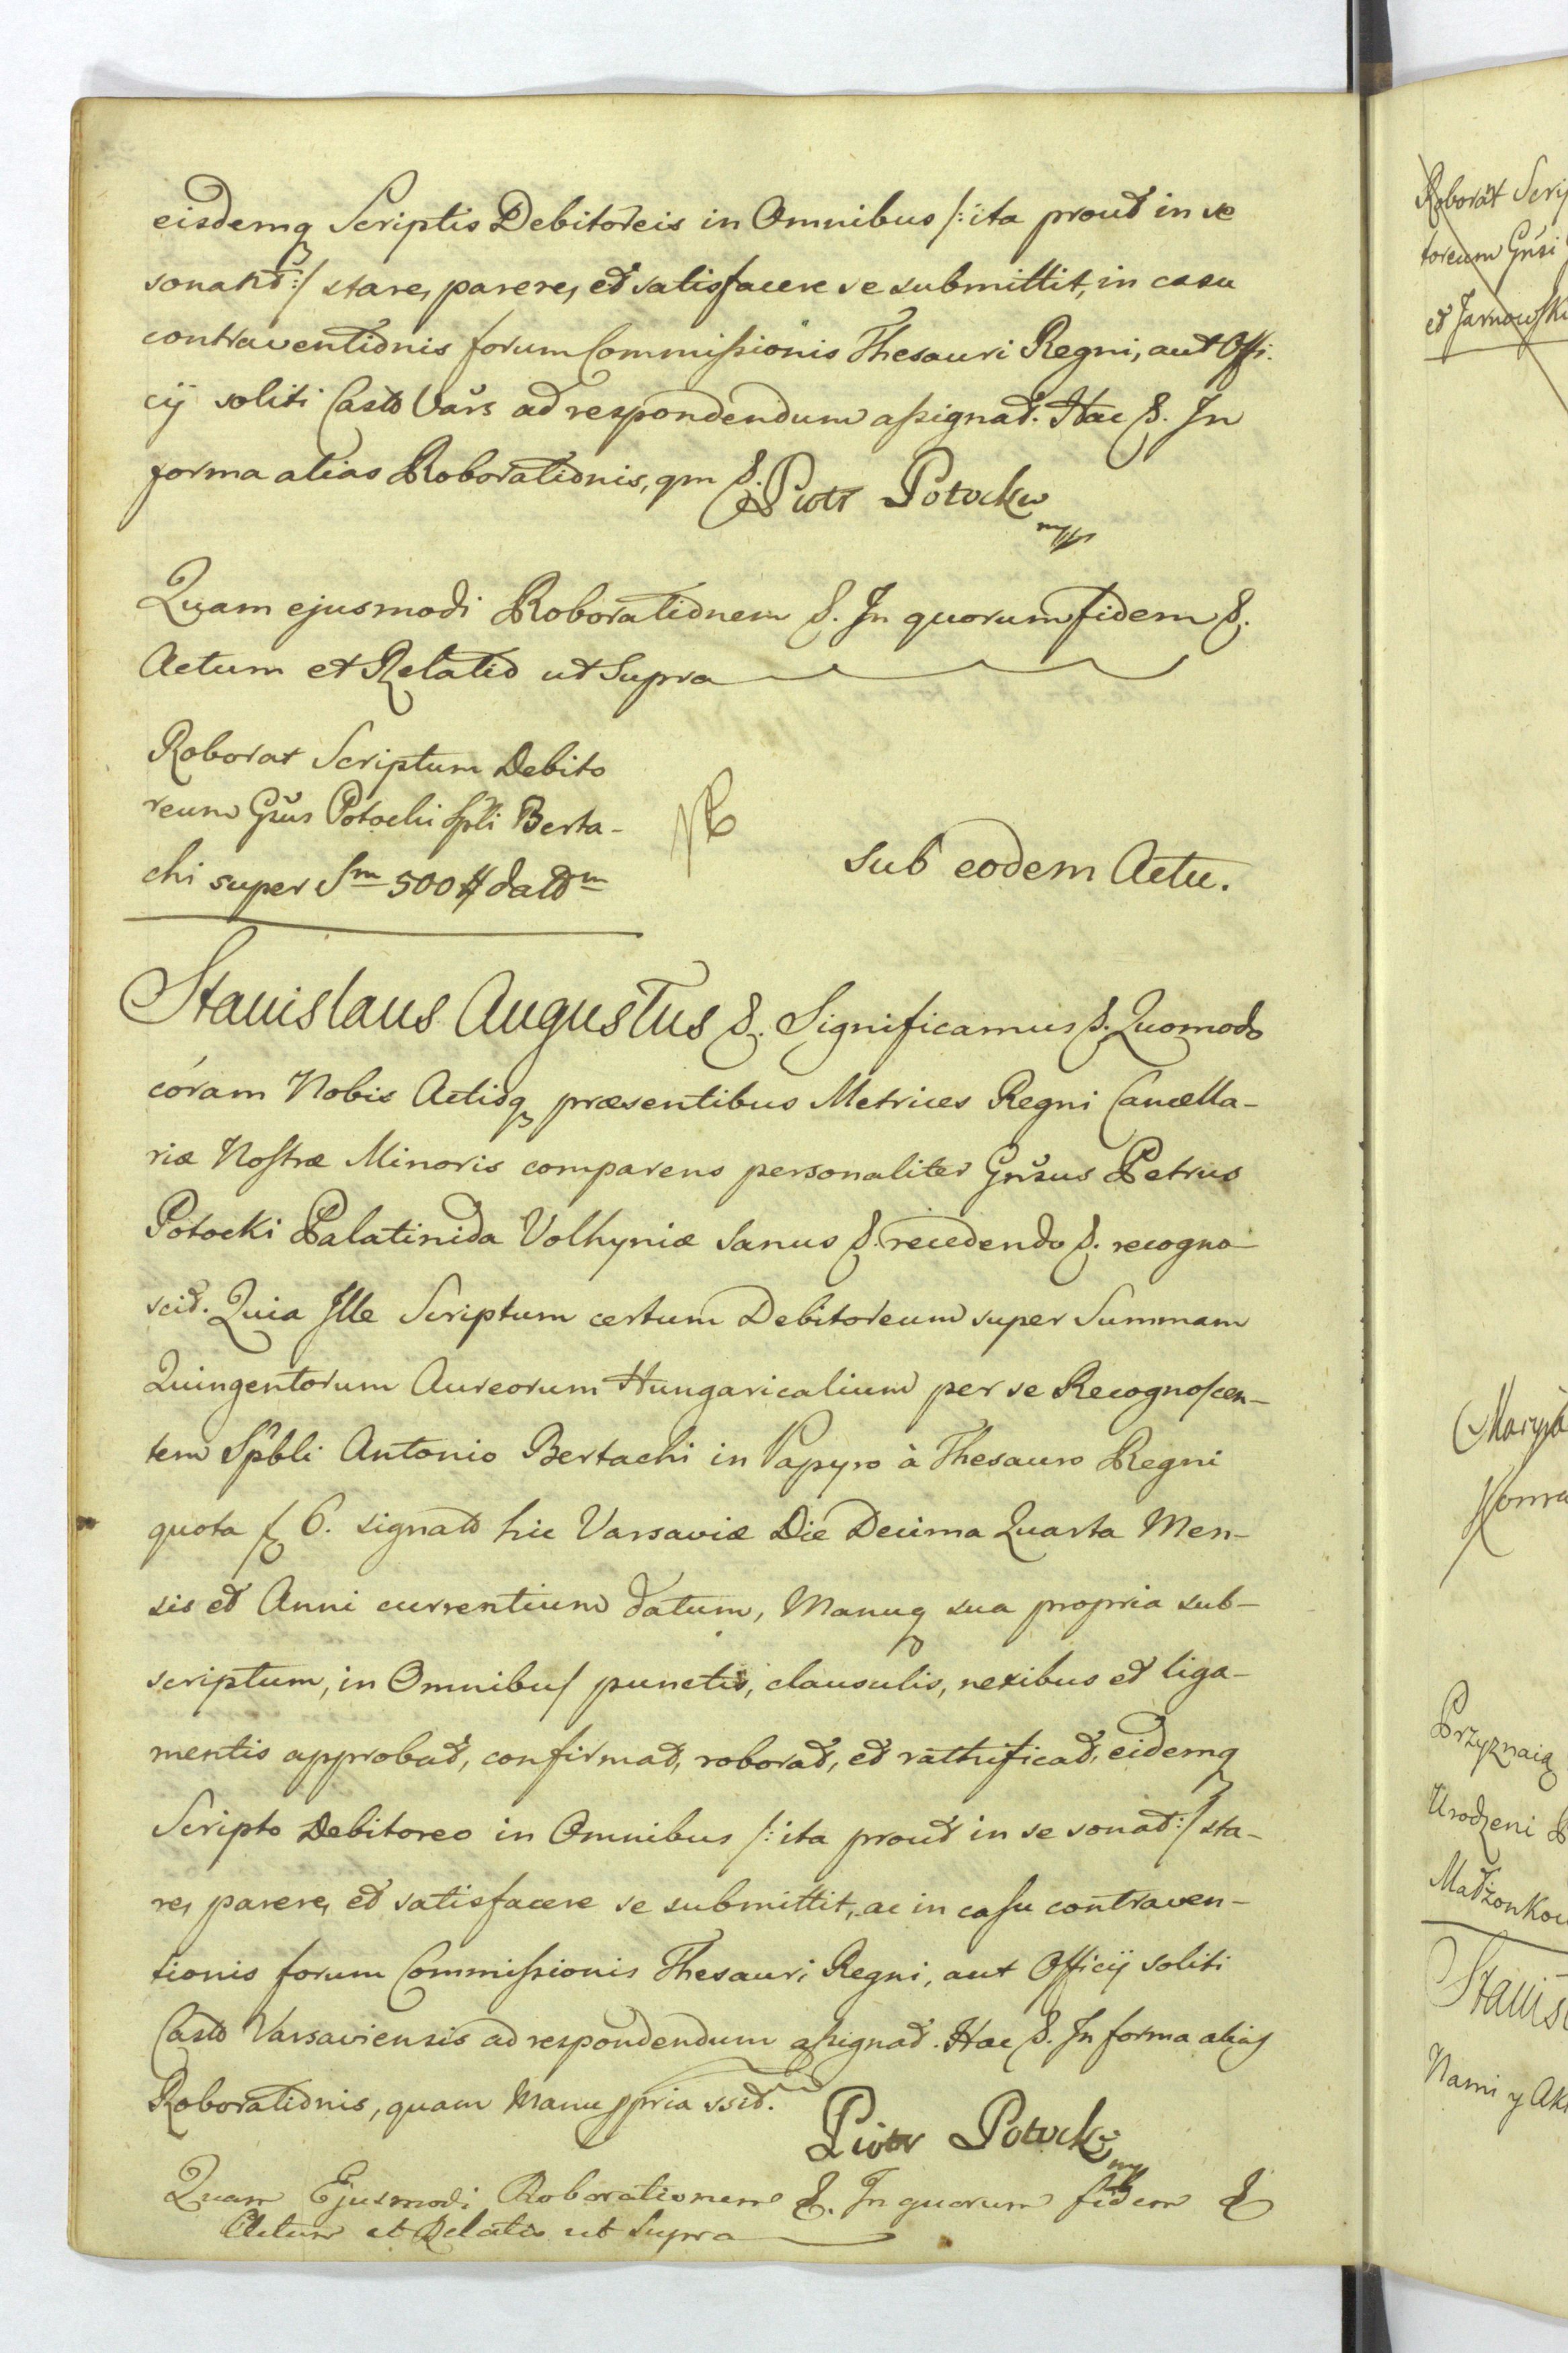 eisdemq Scriptis Debitoreis in Omnibus /: ita prout in se
sonant :/ stare, parere, et satisfacere se submittit, in casu
contraventionis forum Commissionis Thesauri Regni, aut Offi-
cij soliti Casto Vars ad respondendum assignat. Hac &. In
forma alias Roborationis, qm &. Piotr Potocki
mpp
Quam ejusmodi Roborationem &. In quorum fidem &.
Actum et Relatio ut Supra
Roborat Scriptum Debito
reum Gsus Potocki Spli Berta-
chi super Sm 500 # datom
sub eodem Actu.
Stanislaus Augustus &. Significamus &. Quomodo
coram Nobis Actisq præsentibus Metrices Regni Cancella-
riæ Nostræ Minoris comparens personaliter Gnsus Petrus
Potocki Palatinida Volhyniæ sanus &. recedendo &. recogno-
scit. Quia Ille Scriptum certum Debitoreum super Summam
Quingentorum Aureorum Hungaricalium per se Recognoscen-
tem Spbli Antonio Bertachi in Papyro à Thesauro Regni
quota f 6. signato hic Varsaviæ Die Decima Quarta Men-
sis et Anni currentium datum, Manuq sua propria sub-
scriptum, in Omnibus punctis, clausulis, nexibus et liga-
mentis approbat, confirmat, roborat, et rathificat, eidemq
Scripto Debitoreo in Omnibus /: ita prout in se sonat :/ sta-
re, parere, et satisfacere se submittit, ac in casu contraven-
tionis forum Commissionis Thesauri Regni, aut Officij soliti
Casto Varsaviensis ad respondendum assignat. Hac &. In forma alias
Roborationis, quam Manu ppria ssit.
Piotr Potocki
mp
Quam Ejusmodi Roborationem &. In quorum fidem &
Actum et Relatio ut Supra
Roborat Scrip
toreum Gnsi
et Jarnowski
Przyznaią
Urodzeni
Małżonkow
Stanis
Nami y Ak